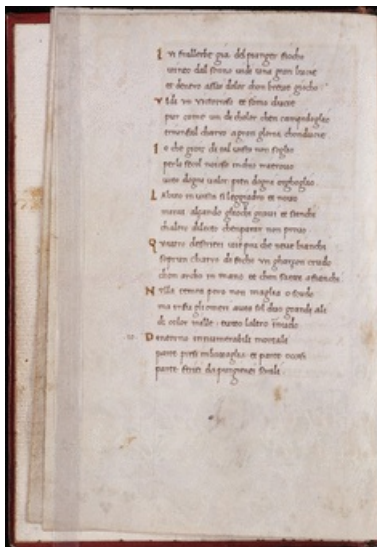 I vi frallerbe gia del pianger fiocho
vinto dal sonno vidi una gran luce
et dentro assai dolor chon breve giocho
V idi un victorioso et somo duce
pur come un di cholor chen campidoglio
trionfal charro a gran gloria chonduce
I o che gioir di tal vista non soglio
per lo secol noioso in chio mi trovo
voto dogni valor pien dogni orghoglio
L abito in vista si leggiadro et novo
mirai alzando gliochi gravi et stanchi
chaltro diletto chenparar non provo
Q uatro destrieri vie piu che neve bianchi
sopra un charro di focho un gharzon crudo
chon archo in mano et chon saette a fianchi
N ulla temea pero non maglia o scudo
ma insu gli omeri avea sol duo grandi ali
di color mille tutto laltro ignudo
D entorno innumerabili mortali
parte presi in battaglia et parte occisi
parte feriti da pungienti strali